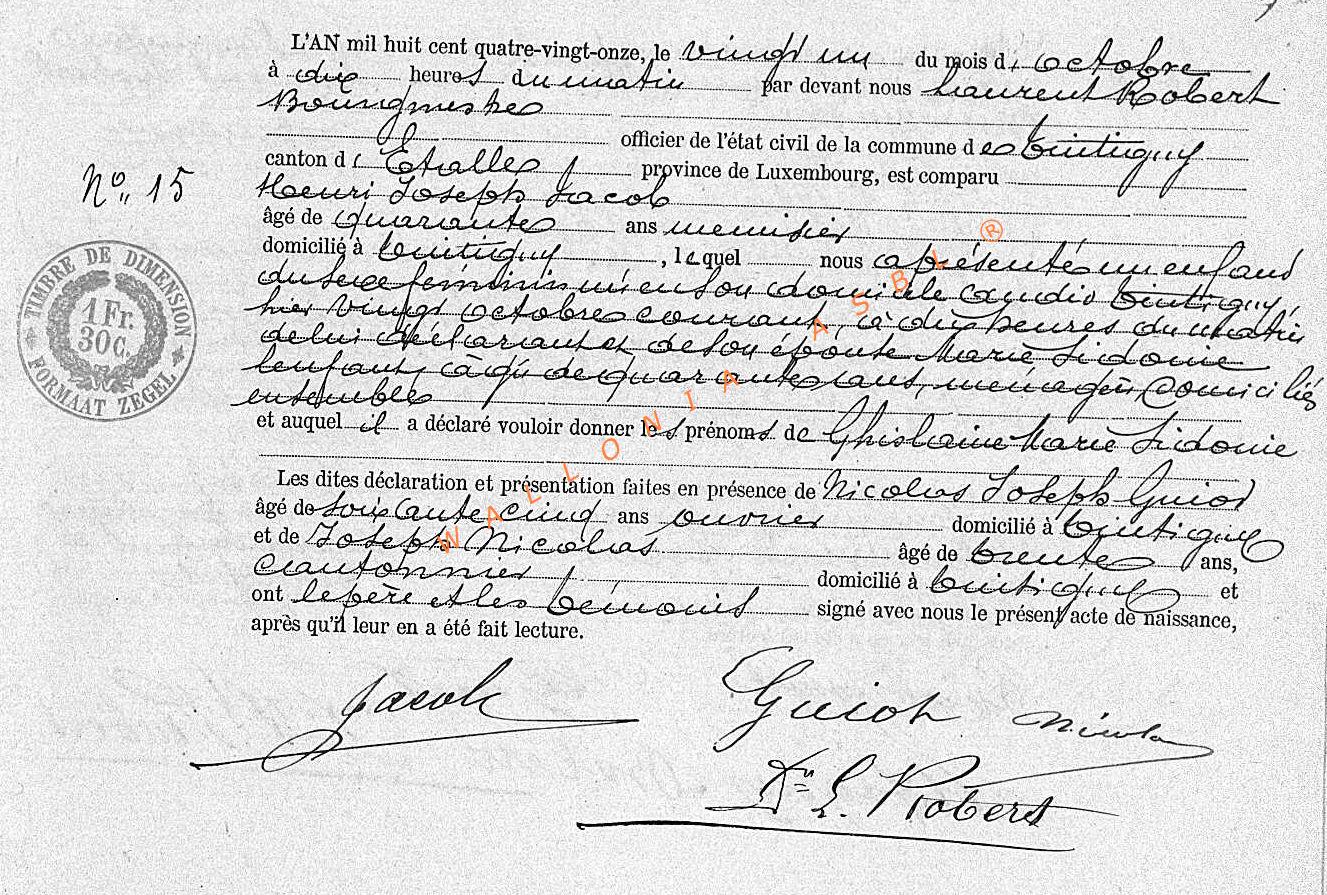 L'AN mil huit cent quatre-vingt-onze, le vingt un du mois d' octobre
à dix heures du matin par devant nous Laurent Robert
Bourgmestre
officier de l'état civil de la commune de Tintigny
canton d' Etalle province de Luxembourg, est comparu
Nº 15
Henri Joseph Jacob
âgé de quarante ans menuisier
domicilié à Tintigny, lequel nous a présenté un enfant
du sexe féminin né en son domicile audit Tintigny,
hier vingt octobre courant, à dix heures du matin
de lui déclarant et de son épouse Marie Sidonie
Lenfant, âgée de quarante ans, ménagère, domiciliés
ensemble
et auquel il a déclaré vouloir donner les prénoms de Ghislaine Marie Sidonie
Les dites déclaration et présentation faites en présence de Nicolas Joseph Guiot
âgé de soixante cinq ans ouvrier domicilié à Tintigny
et de Joseph Nicolas âgé de trente ans,
Cantonnier domicilié à Tintigny et
ont le père et les témoins signé avec nous le présent acte de naissance,
après qu'il leur en a été fait lecture.
TIMBRE DE DIMENSION
1 Fr.
30 C.
FORMAAT ZEGEL
WALLONIA ASBL ®
Jacob
Guiot Nicolas
Dr L. Robert